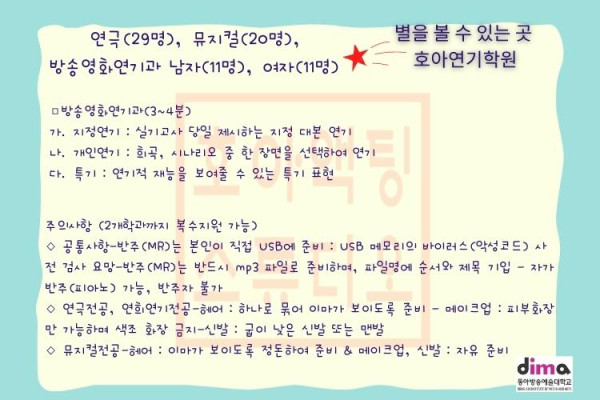 연극(29명), 뮤지컬(20명),
방송영화연기과 남자(11명), 여자(11명)
별을 볼 수 있는 곳
호아연기학원
□방송영화연기과(3~4분)
가. 지정연기 : 실기고사 당일 제시하는 지정 대본 연기
나. 개인연기 : 희곡, 시나리오 중 한 장면을 선택하여 연기
다. 특기 : 연기적 재능을 보여줄 수 있는 특기 표현
호아액팅
스튜디오
주의사항 (2개학과까지 복수지원 가능)
◇ 공통사항-반주(MR)는 본인이 직접 USB에 준비 : USB 메모리의 바이러스(악성코드) 사
전 검사 요망-반주(MR)는 반드시 mp3 파일로 준비하며, 파일명에 순서와 제목 기입 - 자가
반주(피아노) 가능, 반주자 불가
◇ 연극전공, 연희연기전공-헤어 : 하나로 묶어 이마가 보이도록 준비 - 메이크업 : 피부화장
만 가능하며 색조 화장 금지-신발 : 굽이 낮은 신발 또는 맨발
◇ 뮤지컬전공-헤어 : 이마가 보이도록 정돈하여 준비 & 메이크업, 신발 : 자유 준비
dima
동아방송예술대학교